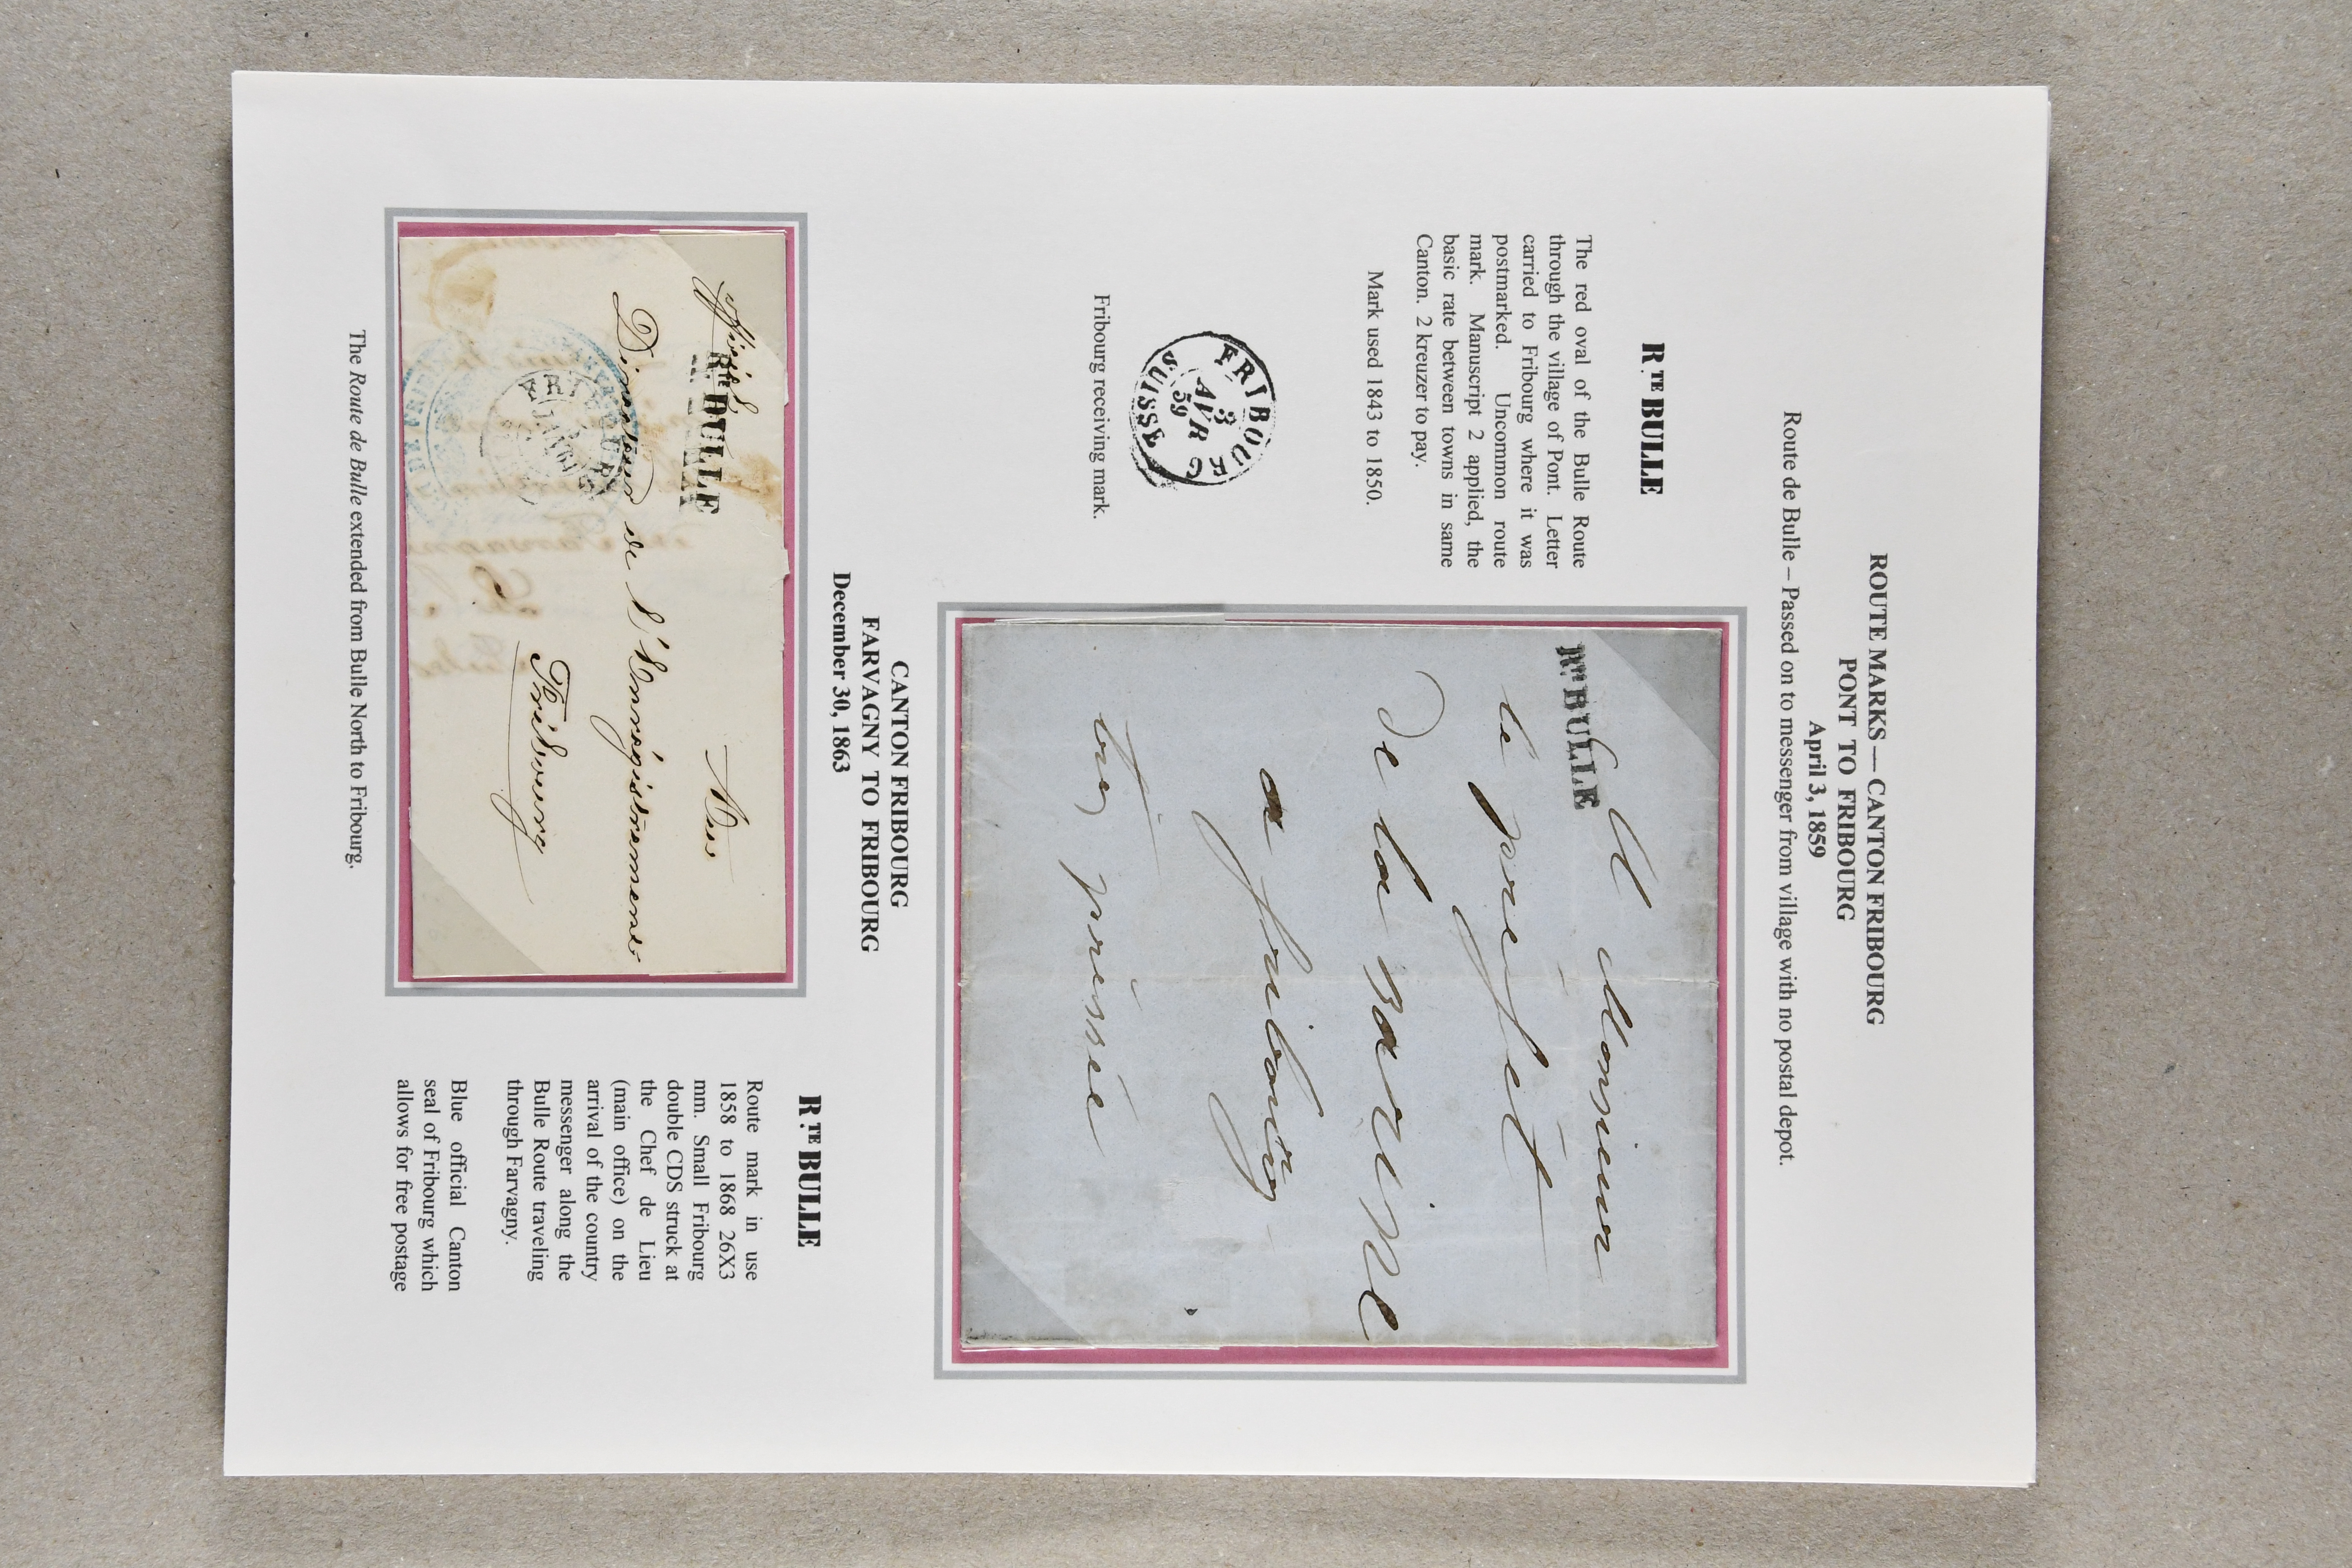 ROUTE MARKS — CANTON FRIBOURG
PONT TO FRIBOURG
April 3, 1859
Route de Bulle – Passed on to messenger from village with no postal depot.
R.TE BULLE
The red oval of the Bulle Route
through the village of Pont. Letter
carried to Fribourg where it was
postmarked. Uncommon route
mark. Manuscript 2 applied, the
basic rate between towns in same
Canton. 2 kreuzer to pay.
Mark used 1843 to 1850.
FRIBOURG
3
AVR
59
SUISSE
Fribourg receiving mark.
RTE BULLE
Monsieur
le préfet
De la Sarine
a fribourg
très pressée
CANTON FRIBOURG
FARVAGNY TO FRIBOURG
December 30, 1863
RTE BULLE
Direction de l'Enrégistrement
Fribourg
R.TE BULLE
Route mark in use
1858 to 1868 26X3
mm. Small Fribourg
double CDS struck at
the Chef de Lieu
(main office) on the
arrival of the country
messenger along the
Bulle Route traveling
through Farvagny.
Blue official Canton
seal of Fribourg which
allows for free postage
The Route de Bulle extended from Bulle North to Fribourg.